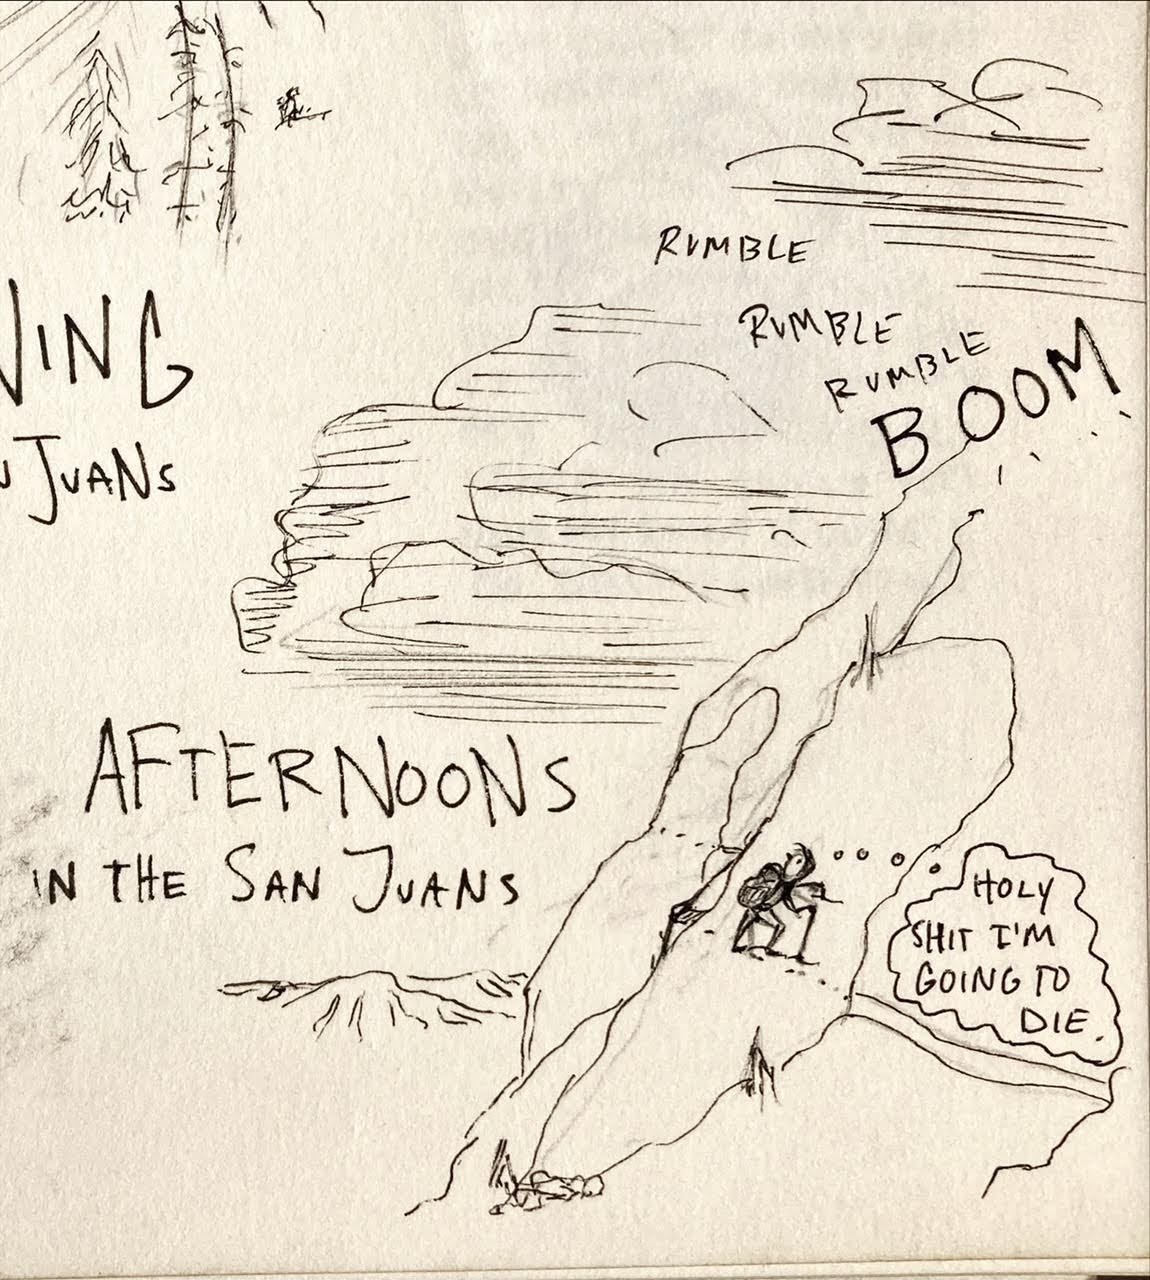 NING
JUANS
RUMBLE
RUMBLE
RUMBLE
BOOM
AFTERNOONS
IN THE SAN JUANS
HOLY
SHIT I'M
GOING TO
DIE.